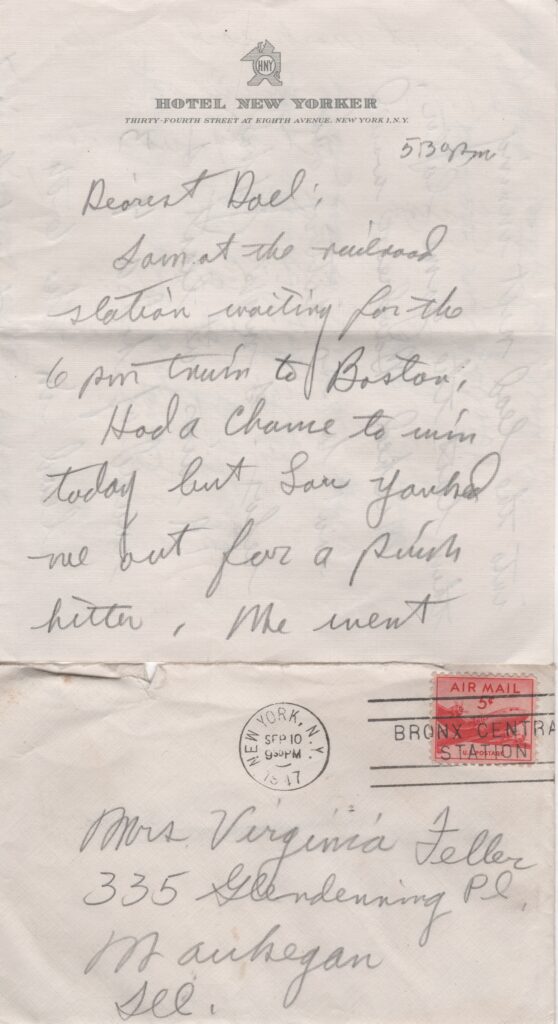 HNY
HOTEL NEW YORKER
THIRTY-FOURTH STREET AT EIGHTH AVENUE, NEW YORK 1, N.Y.
5:30 pm
Dearest Doel:
I am at the railroad
station waiting for the
6 pm train to Boston.
Had a chance to win
today but Lou yanked
me out for a pinch
hitter. We went
AIR MAIL
5¢
U.S. POSTAGE
NEW YORK, N.Y.
SEP 10
9 30 PM
1947
BRONX CENTRA
STATION
Mrs. Virginia Feller
335 Glendenning Pl.
Waukegan
Ill.